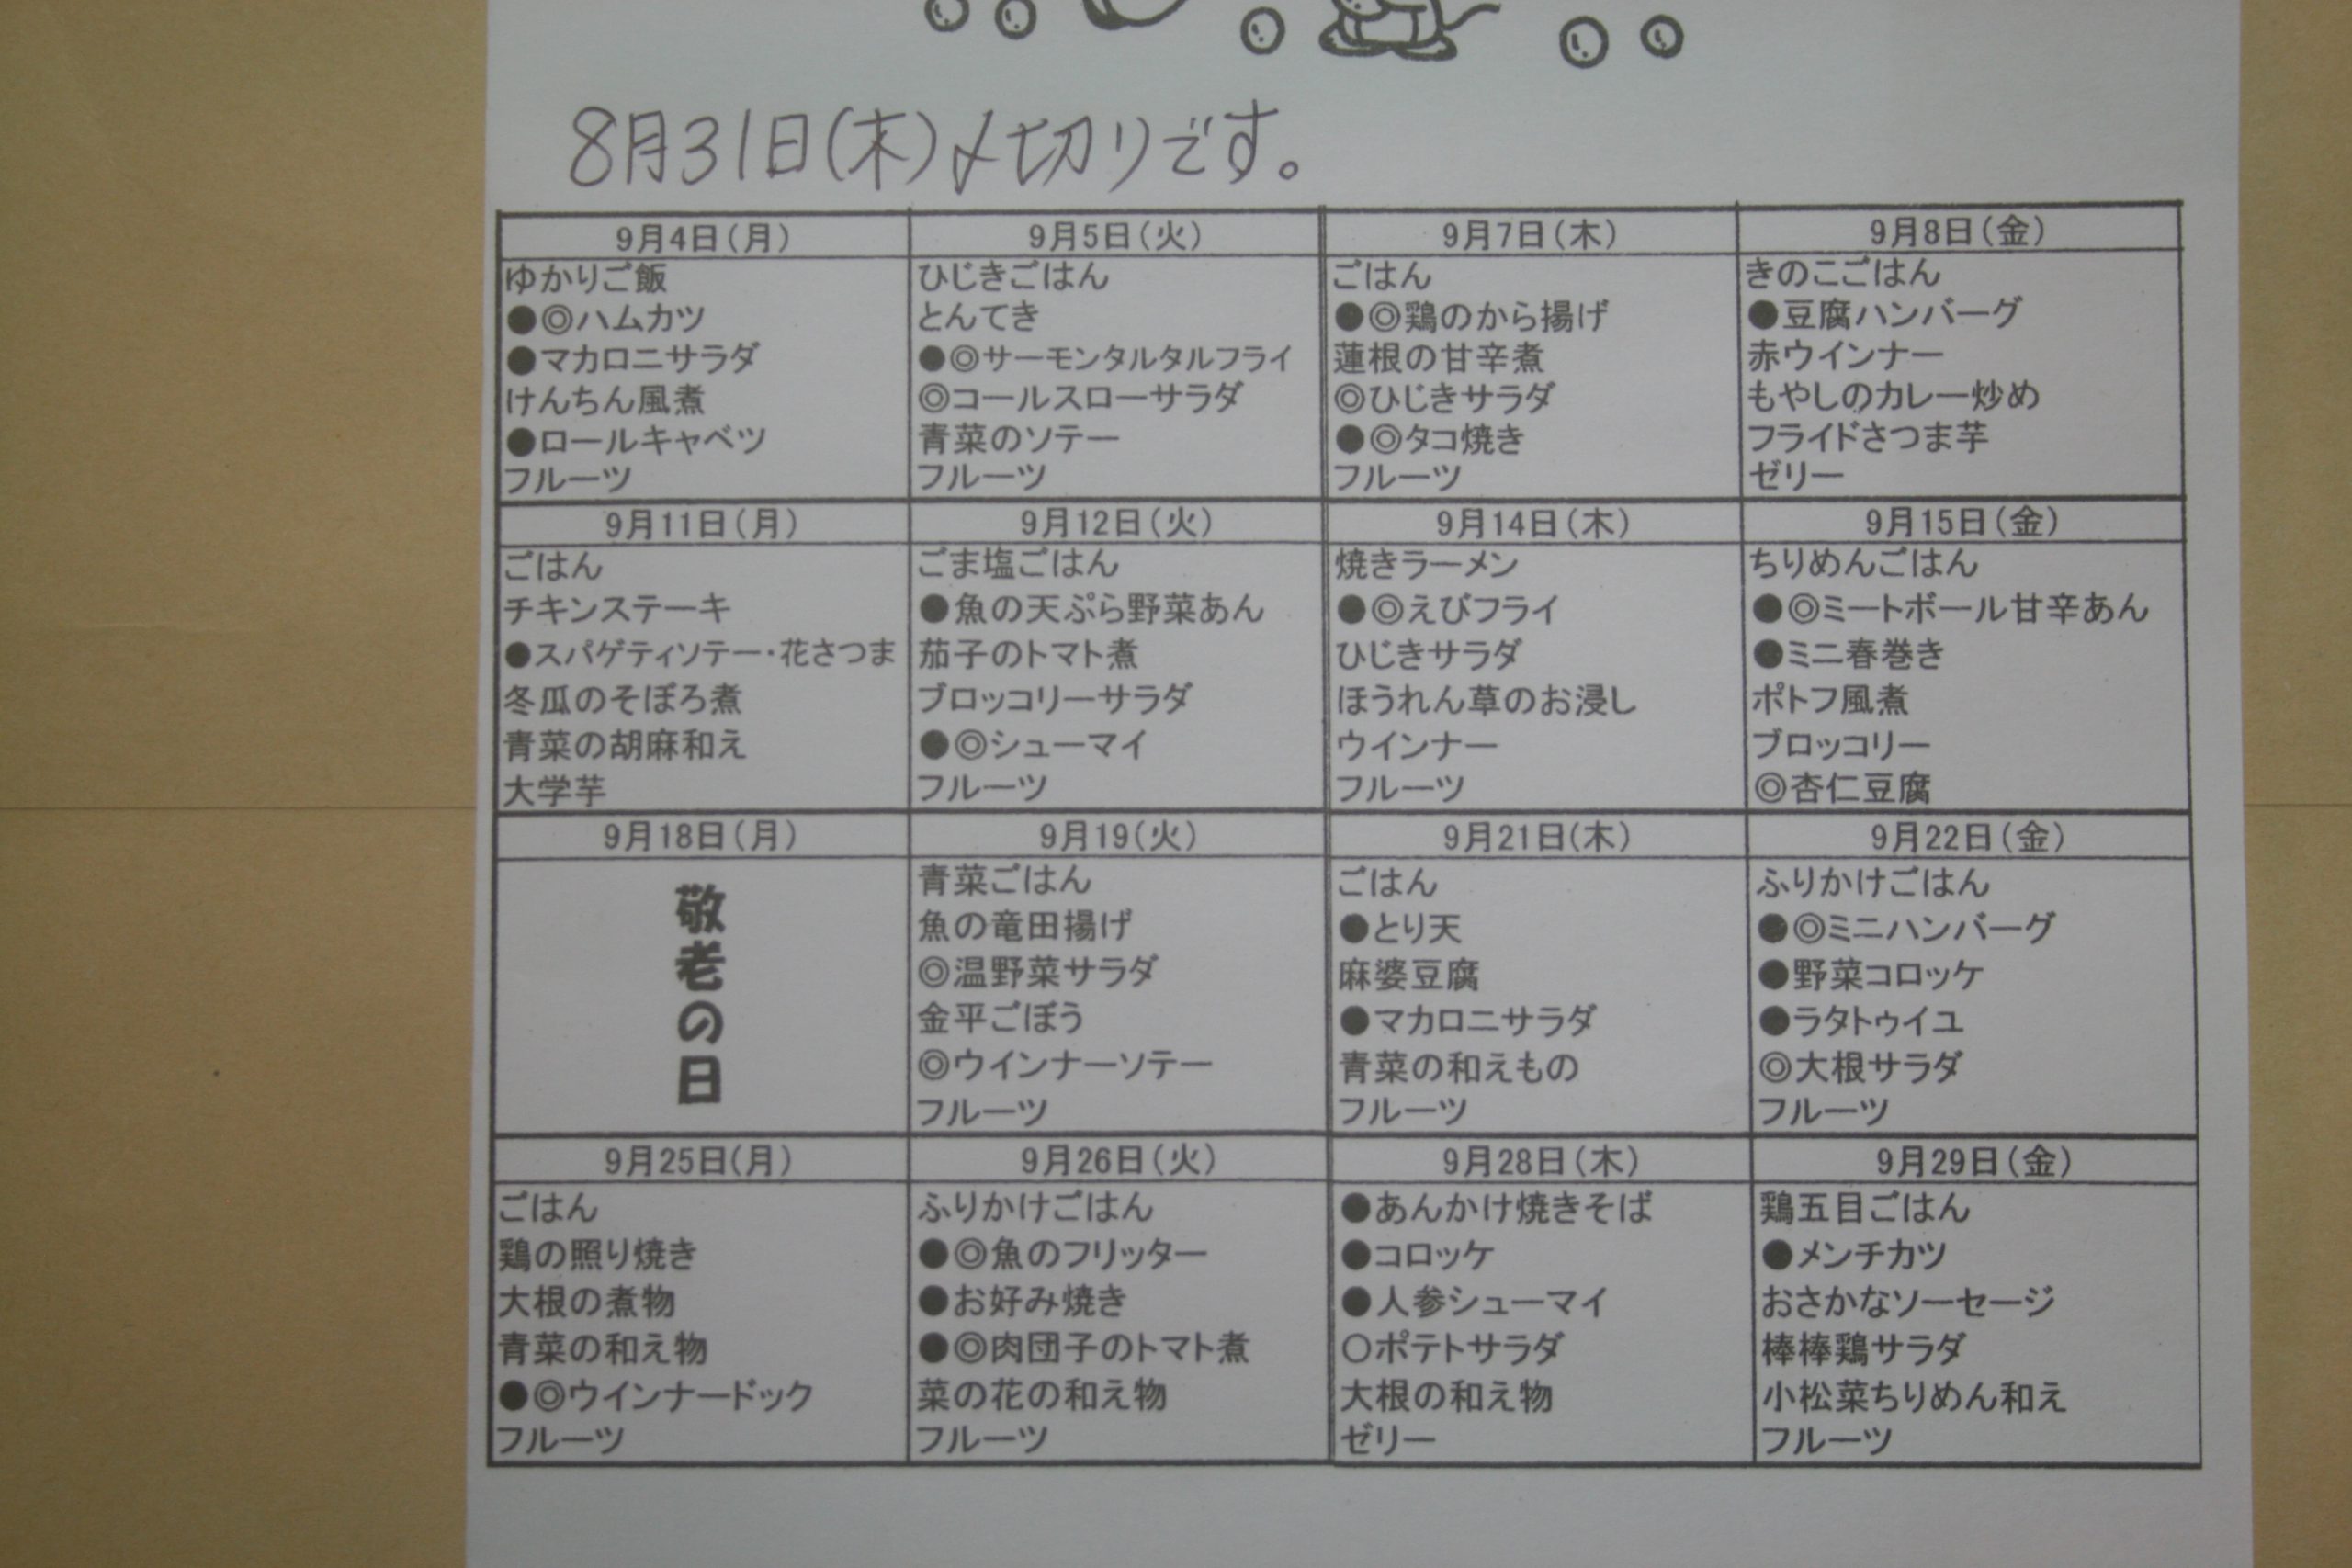 8月31日(木)〆切りです。
9月4日(月)
ゆかりご飯
●◎ハムカツ
●マカロニサラダ
けんちん風煮
●ロールキャベツ
フルーツ
9月5日(火)
ひじきごはん
とんてき
●◎サーモンタルタルフライ
◎コールスローサラダ
青菜のソテー
フルーツ
9月7日(木)
ごはん
●◎鶏のから揚げ
蓮根の甘辛煮
◎ひじきサラダ
●◎タコ焼き
フルーツ
9月8日(金)
きのこごはん
●豆腐ハンバーグ
赤ウインナー
もやしのカレー炒め
フライドさつま芋
ゼリー
9月11日(月)
ごはん
チキンステーキ
●スパゲティソテー・花さつま
冬瓜のそぼろ煮
青菜の胡麻和え
大学芋
9月12日(火)
ごま塩ごはん
●魚の天ぷら野菜あん
茄子のトマト煮
ブロッコリーサラダ
●◎シューマイ
フルーツ
9月14日(木)
焼きラーメン
●◎えびフライ
ひじきサラダ
ほうれん草のお浸し
ウインナー
フルーツ
9月15日(金)
ちりめんごはん
●◎ミートボール甘辛あん
●ミニ春巻き
ポトフ風煮
ブロッコリー
◎杏仁豆腐
9月18日(月)
敬老の日
9月19(火)
青菜ごはん
魚の竜田揚げ
◎温野菜サラダ
金平ごぼう
◎ウインナーソテー
フルーツ
9月21日(木)
ごはん
●とり天
麻婆豆腐
●マカロニサラダ
青菜の和えもの
フルーツ
9月22日(金)
ふりかけごはん
●◎ミニハンバーグ
●野菜コロッケ
●ラタトゥイユ
◎大根サラダ
フルーツ
9月25日(月)
ごはん
鶏の照り焼き
大根の煮物
青菜の和え物
●◎ウインナードック
フルーツ
9月26日(火)
ふりかけごはん
●◎魚のフリッター
●お好み焼き
●◎肉団子のトマト煮
菜の花の和え物
フルーツ
9月28日(木)
●あんかけ焼きそば
●コロッケ
●人参シューマイ
○ポテトサラダ
大根の和え物
ゼリー
9月29日(金)
鶏五目ごはん
●メンチカツ
おさかなソーセージ
棒棒鶏サラダ
小松菜ちりめん和え
フルーツ